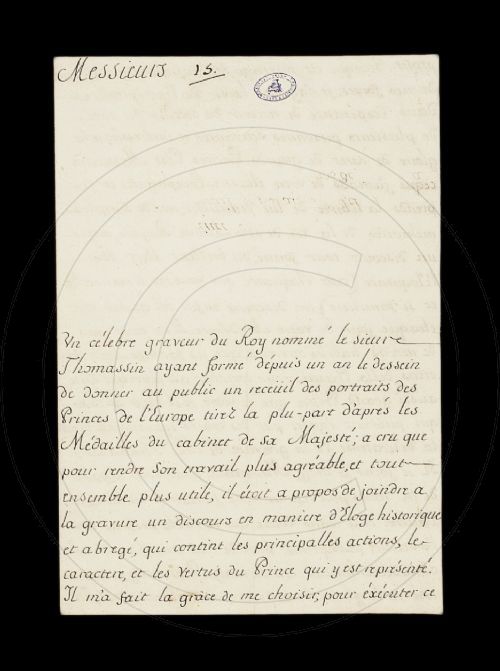 Messieurs 15.
Un célebre graveur du Roy nommé le sieur
Thomassin ayant formé dépuis un an le dessein
de donner au public un recüeil des portraits des
Princes de l'Europe tiréz la plu-part d'aprés les
Médailles du cabinet de sa Majesté; a cru que
pour rendre son travail plus agréable, et tout
ensemble plus utile, il étoit a propos de joindre a
la gravure un discours en maniere d'Eloge historique
et abregé, qui contint les principalles actions, le
caractere, et les vertus du Prince qui y est représenté.
Il m'a fait la grâce de me choisir, pour éxécuter ce